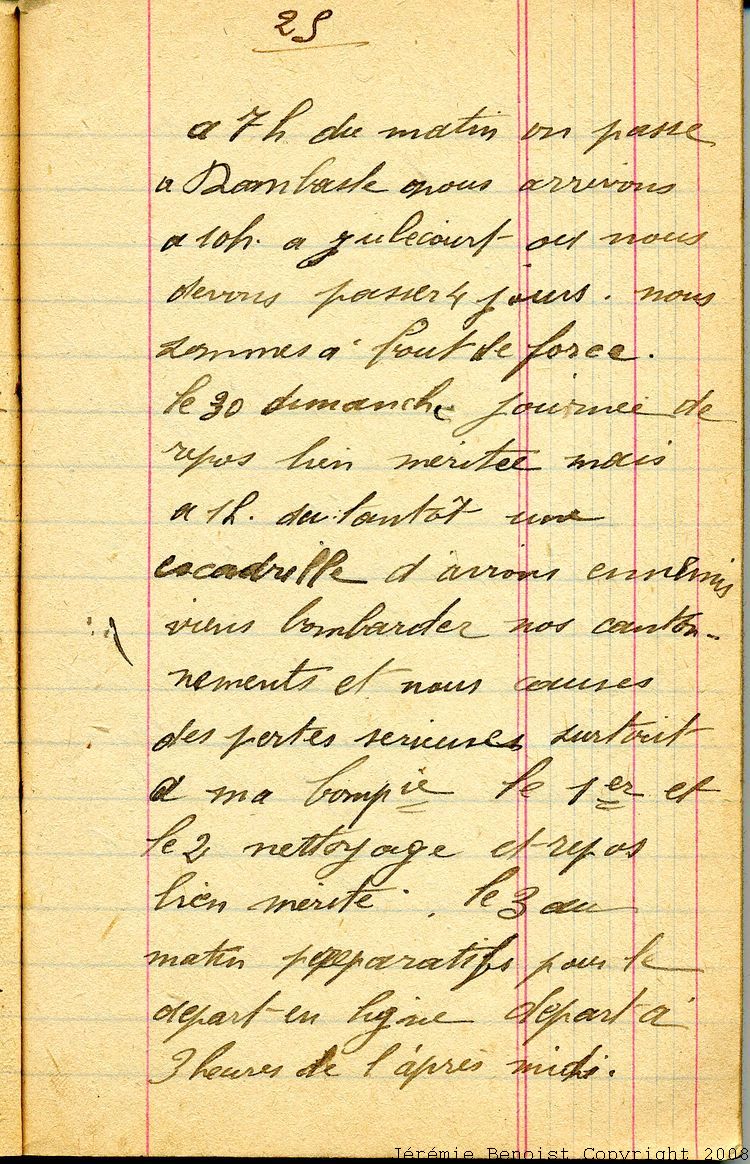 25
a 7 h du matin on passe
a Dombasle nous arrivons
a 10h. a Julecourt ou nous
devons passer 4 jours. nous
sommes a bout de force.
le 30 dimanche journee de
repos bien meritee mais
a 1h. du tantôt une
escadrille d'avions ennemis
viens bombarder nos canton-
nements et nous causes
des pertes serieuses surtout
a ma Compie le 1er et
le 2 nettoyage et repos
bien merité. le 3 au
matin preparatifs pour le
depart en ligne depart a
3 heures de l'àprès midi.
Jérémie Benoist Copyright 2008